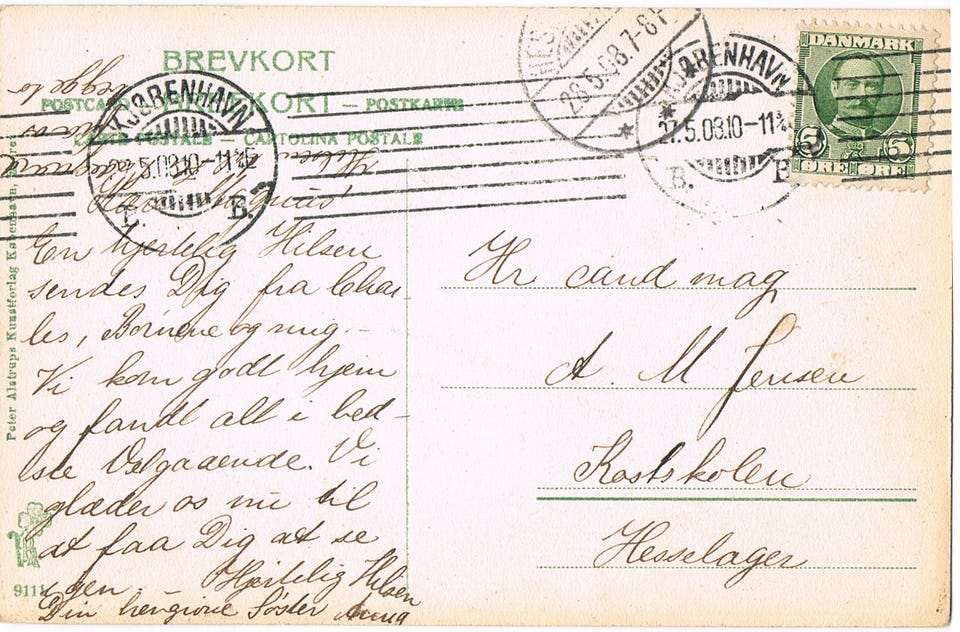 BREVKORT
POSTCARD — BREVKORT — POSTKARTE
CARTE POSTALE — CARTOLINA POSTALE
Peter Alstrups Kunstforlag Kabenhavn
9111
KJØBENHAVN
5.08.10-11
B.
28.5.08.7-8
KJØBENHAVN
27.5.08.10-11
B. B.
DANMARK
5 5
ØRE ØRE
Kære Magnus!
En hjertelig Hilsen
sendes Dig fra Char-
les, Børnene og mig –
Vi kom godt hjem
og fandt alt i bed-
ste Velgaaende. Vi
glæder os nu til
at faa Dig at se
igen. Hjertelig Hilsen
Din hengivne Søster Anna
Hilsen
begge to
Hr cand mag
A. M Jensen
Kostskolen
Hesselager